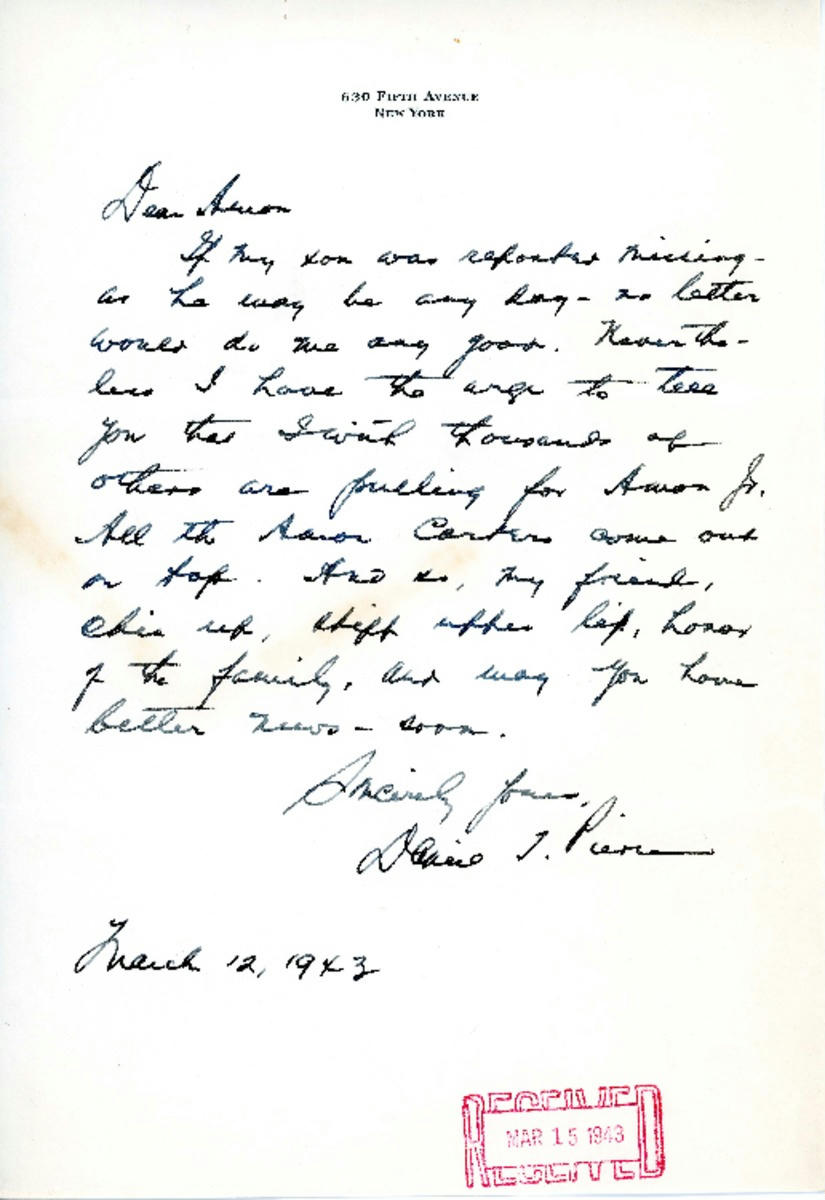 630 FIFTH AVENUE
NEW YORK
Dear Amon
If my son was reported missing-
as he may be any day- no letter
would do me any good. Neverthe-
less I have the urge to tell
you that I with thousands of
others are pulling for Amon Jr.
All the Amon Carters come out
on top. And so, my friend,
chin up, stiff upper lip, honor
of the family, and may you have
better news- soon.
Sincerely yours,
T. Pierce
March 12, 1943
RECEIVED
MAR 15 1943
RECEIVED